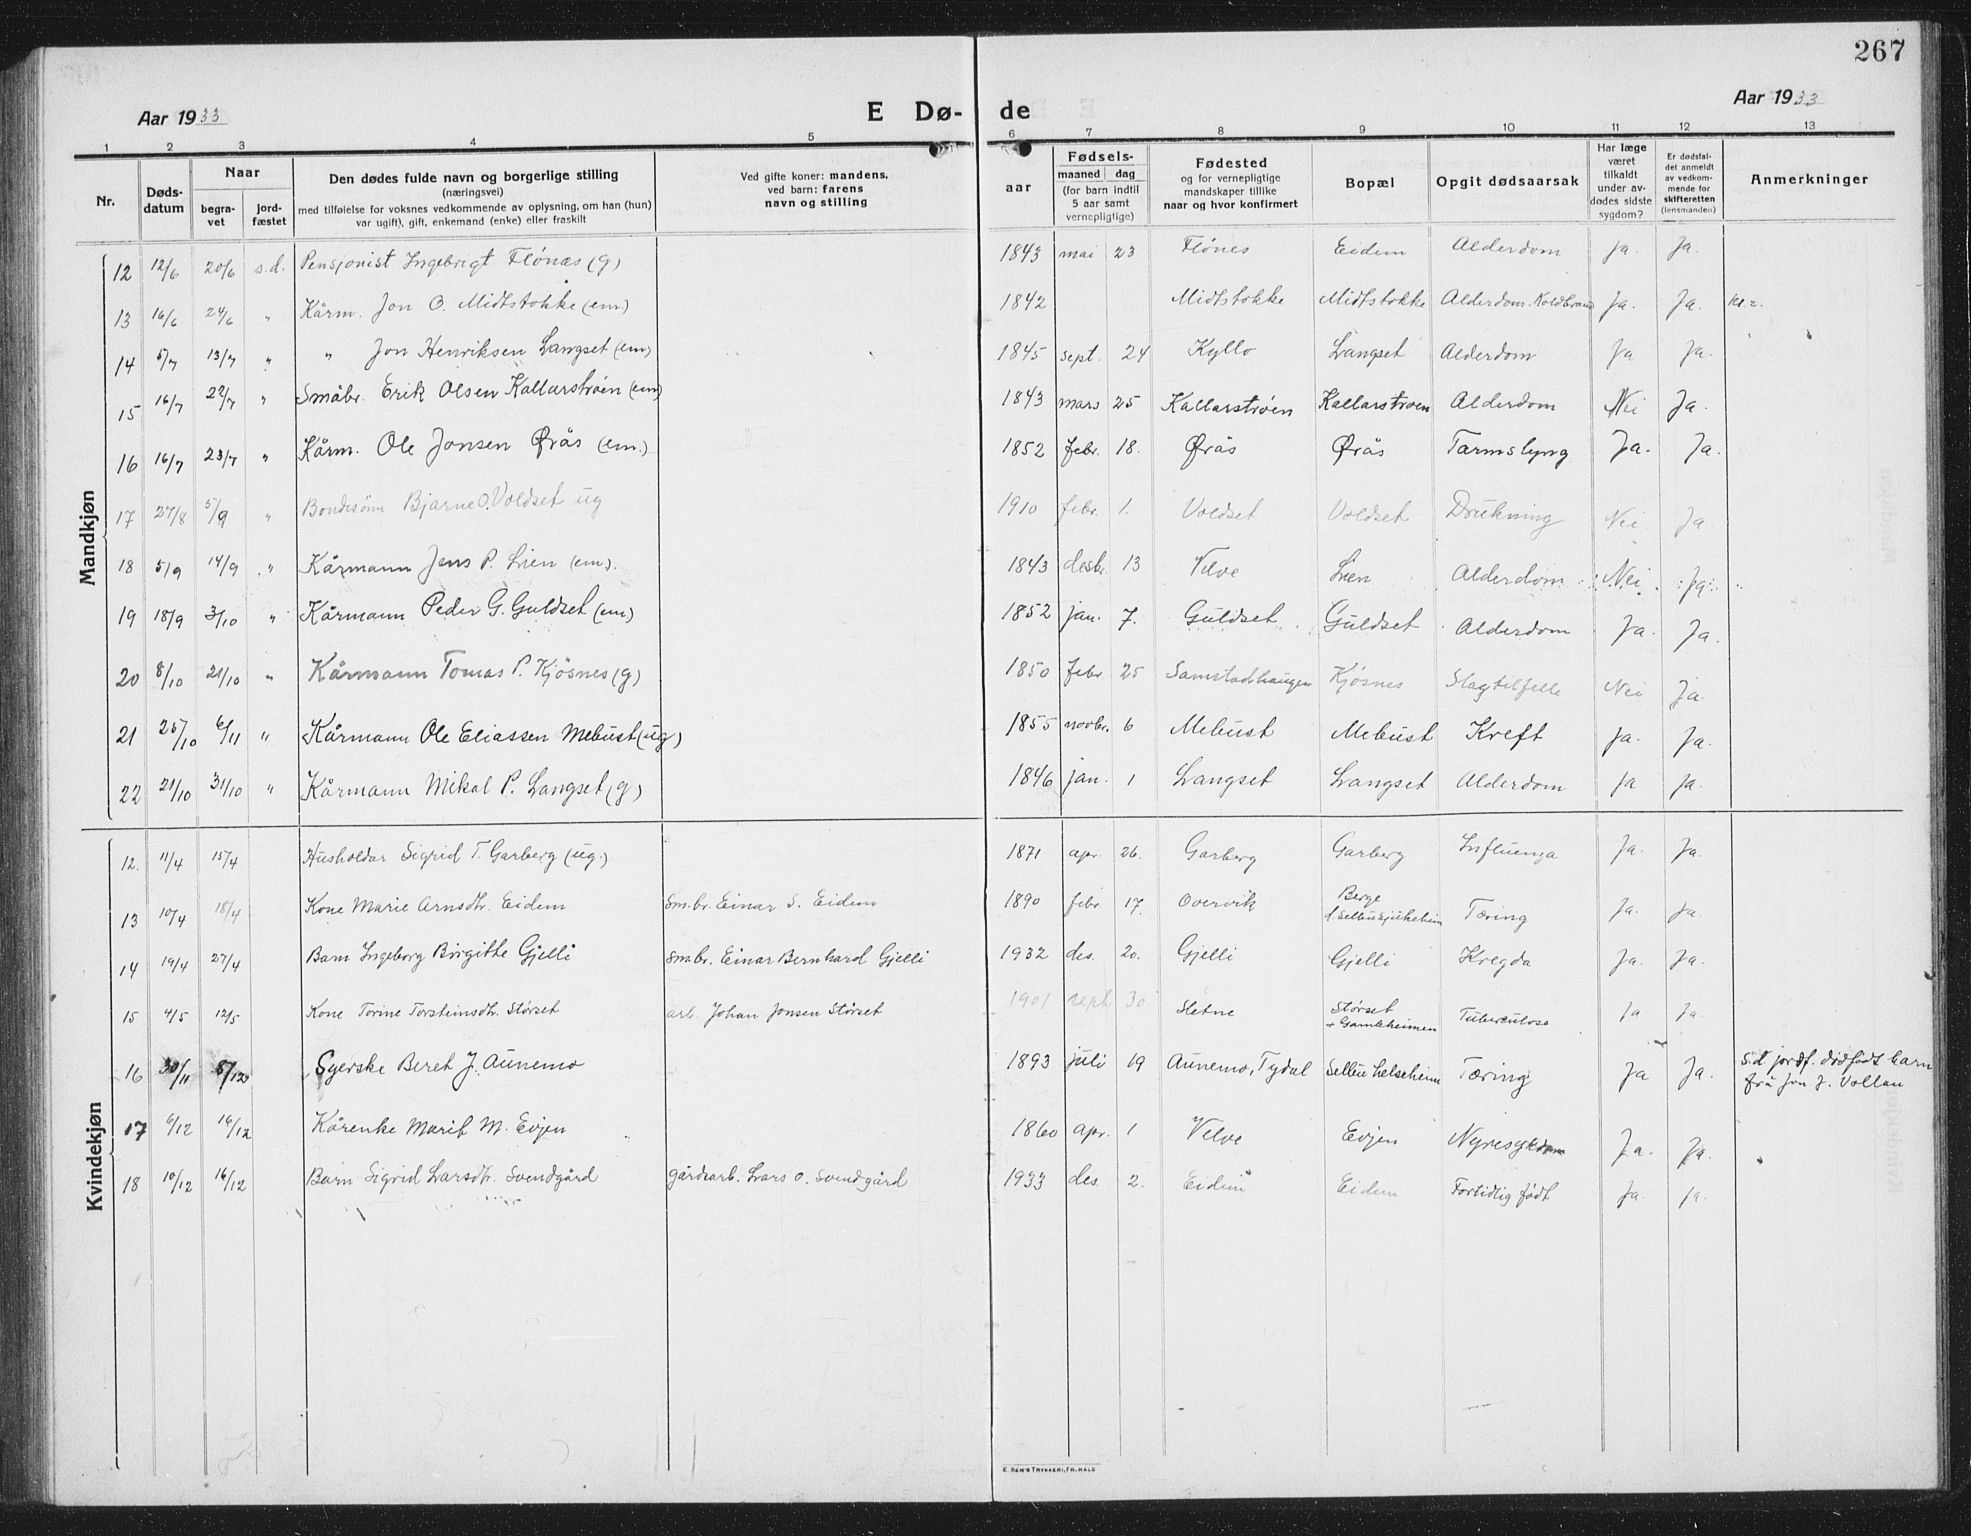 267
Aar 1933
E Dø-
de
Aar 1933
1 2 3 4 5 6 7 8 9 10 11 12 13
Nr.
Døds-
datum
Naar
begra-
vet
jord-
fæstet
Den dødes fulde navn og borgerlige stilling
(næringsvei)
med tilføielse for voksnes vedkommende av oplysning, om han (hun)
var ugift), gift, enkemand (enke) eller fraskilt
Ved gifte koner: mandens,
ved barn: farens
navn og stilling
aar
Fødsels-
maaned dag
(for barn indtil
5 aar samt
vernepligtige)
Fødested
og for vernepligtige
mandskaper tillike
naar og hvor konfirmert
Bopæl
Opgit dødsaarsak
Har læge
været
tilkaldt
under av-
dødes sidste
sygdom?
Er dødsfal-
det anmeldt
av vedkom-
mende for
skifteretten
(lensmanden)
Anmerkninger
Mandkjøn
12 12/6 20/6 s.d. Pensjonist Ingebrigt Flónæs (g) 1843 mai 23 Flónes Eidem Alderdom Ja. Ja.
13 16/6 24/6 " Kårm. Jon O. Midtstokke (em) 1842 Midtstokke Midtstokke Alderdom. Koldbrand Ja. Ja. kl. 2.
14 5/7 13/7 " " Jon Henriksen Langset (em) 1845 sept. 24 Kyllo Langset Alderdom Ja Ja.
15 16/7 22/7 " Småbr. Erik Olsen Kallarstrøen (em) 1843 mars 25 Kallarstrøen Kallarstrøen Alderdom Nei Ja.
16 16/7 23/7 " Kårm. Ole Jonsen Øràs (em.) 1852 febr. 18. Øràs Øràs Tarmslyng Ja. Ja.
17 27/8 5/9 " Bondesønn Bjarne O. Voldset ug 1910 febr. 1. Voldset Voldset Drukning Nei Ja
18 5/9 14/9 " Kårmann Jens P. Lien (em). 1843 desbr. 13 Velve Lien Alderdom Nei. Ja.
19 18/9 3/10 " Kårmann Peder G. Guldset (em) 1852 jan. 7. Guldset Guldset Alderdom Ja. Ja.
20 8/10 21/10 " Kårmann Tomas P. Kjósnes (g) 1850 febr 25 Samstadhaugen Kjósnes Slagtilfelle Nei Ja.
21 25/10 6/11 " Kårmann Ole Eliassen Mebust (ug) 1855 novbr. 6 Mebust Mebust Kreft Ja. Ja.
22 21/10 31/10 " Kårmann Mikal P. Langset (g) 1846 jan. 1 Langset Langset Alderdom Ja Ja.
Kvindekjøn
12. 11/4 15/4 Husholdar Sigrid T. Garberg (ug.) 1871 apr. 26. Garberg Garberg Influenza Ja. Ja.
13 10/4 18/4 Kone Marie Arnsdtr. Eidem Sm.br. Einar S. Eidem 1890 febr. 17. Overvik Berge
d. Selbu sjukeheim Tæring Ja. Ja.
14 19/4 27/4 Barn Ingeborg Birgitte Gjelli Sm.br. Einar Bernhard Gjelli 1932 des. 20. Gjelli Gjelli Kregda Ja. Ja.
15 4/5 12/5 Kone Torine Torsteinsdtr. Stórset arb. Johan Jonsen Stórset 1901 sept 30 Sletne Stórset
+ Gamleheimen Tuberculose Ja Ja.
16 30/11 5/12 Syerske Beret J. Aunemo 1893 juli 19 Aunemo, Tydal Selbu helseheim Tæring Ja Ja. S.d. jordf. dødfødt barn
frå Jon J. Vollan
17 6/12 16/12 Kårenke Marit M. Evjen 1860 apr. 1 Velve Evjen Nyresykdom Ja. Ja.
18 10/12 16/12 Barn Sigrid Larsdtr. Svendgård gårdsarb. Lars O. Svendgård 1933 des. 2. Eidem Eidem Fortidlig født Ja. Ja.
E. SEM'S TRYKKERI, FR.HALD